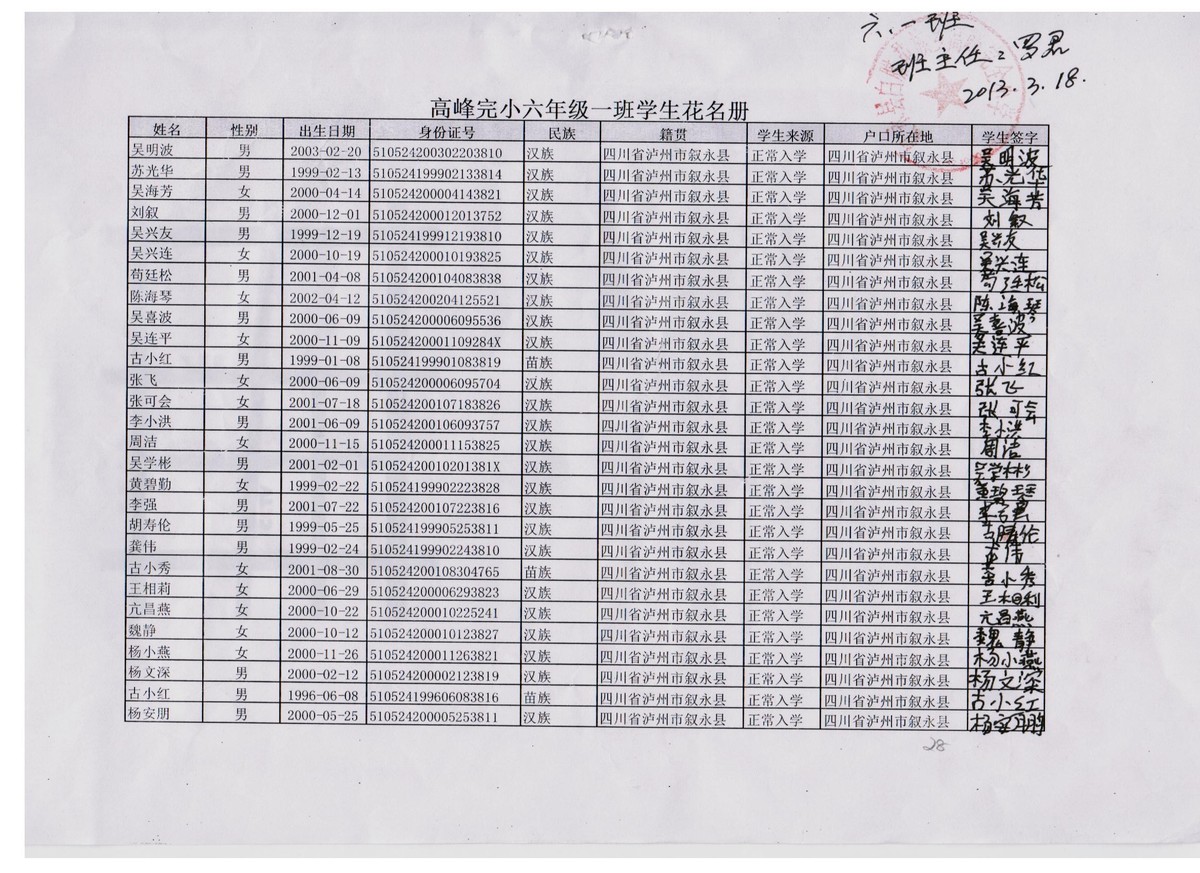 六.一班
班主任:罗君
2013.3.18.
高峰完小六年级一班学生花名册
姓名 性别 出生日期 身份证号 民族 籍贯 学生来源 户口所在地 学生签字
吴明波 男 2003-02-20 510524200302203810 汉族 四川省泸州市叙永县 正常入学 四川省泸州市叙永县 吴明波
苏光华 男 1999-02-13 510524199902133814 汉族 四川省泸州市叙永县 正常入学 四川省泸州市叙永县 苏光华
吴海芳 女 2000-04-14 510524200004143821 汉族 四川省泸州市叙永县 正常入学 四川省泸州市叙永县 吴海芳
刘叙 男 2000-12-01 510524200012013752 汉族 四川省泸州市叙永县 正常入学 四川省泸州市叙永县 刘叙
吴兴友 男 1999-12-19 510524199912193810 汉族 四川省泸州市叙永县 正常入学 四川省泸州市叙永县 吴兴友
吴兴连 女 2000-10-19 510524200010193825 汉族 四川省泸州市叙永县 正常入学 四川省泸州市叙永县 吴兴连
苟廷松 男 2001-04-08 510524200104083838 汉族 四川省泸州市叙永县 正常入学 四川省泸州市叙永县 苟廷松
陈海琴 女 2002-04-12 510524200204125521 汉族 四川省泸州市叙永县 正常入学 四川省泸州市叙永县 陈海琴
吴喜波 男 2000-06-09 510524200006095536 汉族 四川省泸州市叙永县 正常入学 四川省泸州市叙永县 吴喜波
吴连平 女 2000-11-09 51052420001109284X 汉族 四川省泸州市叙永县 正常入学 四川省泸州市叙永县 吴连平
古小红 男 1999-01-08 510524199901083819 苗族 四川省泸州市叙永县 正常入学 四川省泸州市叙永县 古小红
张飞 女 2000-06-09 510524200006095704 汉族 四川省泸州市叙永县 正常入学 四川省泸州市叙永县 张飞
张可会 女 2001-07-18 510524200107183826 汉族 四川省泸州市叙永县 正常入学 四川省泸州市叙永县 张可会
李小洪 男 2001-06-09 510524200106093757 汉族 四川省泸州市叙永县 正常入学 四川省泸州市叙永县 李小洪
周洁 女 2000-11-15 510524200011153825 汉族 四川省泸州市叙永县 正常入学 四川省泸州市叙永县 周洁
吴学彬 男 2001-02-01 51052420010201381X 汉族 四川省泸州市叙永县 正常入学 四川省泸州市叙永县 吴学彬
黄碧勤 女 1999-02-22 510524199902223828 汉族 四川省泸州市叙永县 正常入学 四川省泸州市叙永县
李强 男 2001-07-22 510524200107223816 汉族 四川省泸州市叙永县 正常入学 四川省泸州市叙永县 李强
胡寿伦 男 1999-05-25 510524199905253811 汉族 四川省泸州市叙永县 正常入学 四川省泸州市叙永县
龚伟 男 1999-02-24 510524199902243810 汉族 四川省泸州市叙永县 正常入学 四川省泸州市叙永县
古小秀 女 2001-08-30 510524200108304765 苗族 四川省泸州市叙永县 正常入学 四川省泸州市叙永县 古小秀
王相莉 女 2000-06-29 510524200006293823 汉族 四川省泸州市叙永县 正常入学 四川省泸州市叙永县 王相利
亢昌燕 女 2000-10-22 510524200010225241 汉族 四川省泸州市叙永县 正常入学 四川省泸州市叙永县 亢昌燕
魏静 女 2000-10-12 510524200010123827 汉族 四川省泸州市叙永县 正常入学 四川省泸州市叙永县 魏静
杨小燕 女 2000-11-26 510524200011263821 汉族 四川省泸州市叙永县 正常入学 四川省泸州市叙永县 杨小燕
杨文深 男 2000-02-12 510524200002123819 汉族 四川省泸州市叙永县 正常入学 四川省泸州市叙永县 杨文深
古小红 男 1996-06-08 510524199606083816 苗族 四川省泸州市叙永县 正常入学 四川省泸州市叙永县 古小红
杨安朋 男 2000-05-25 510524200005253811 汉族 四川省泸州市叙永县 正常入学 四川省泸州市叙永县
28